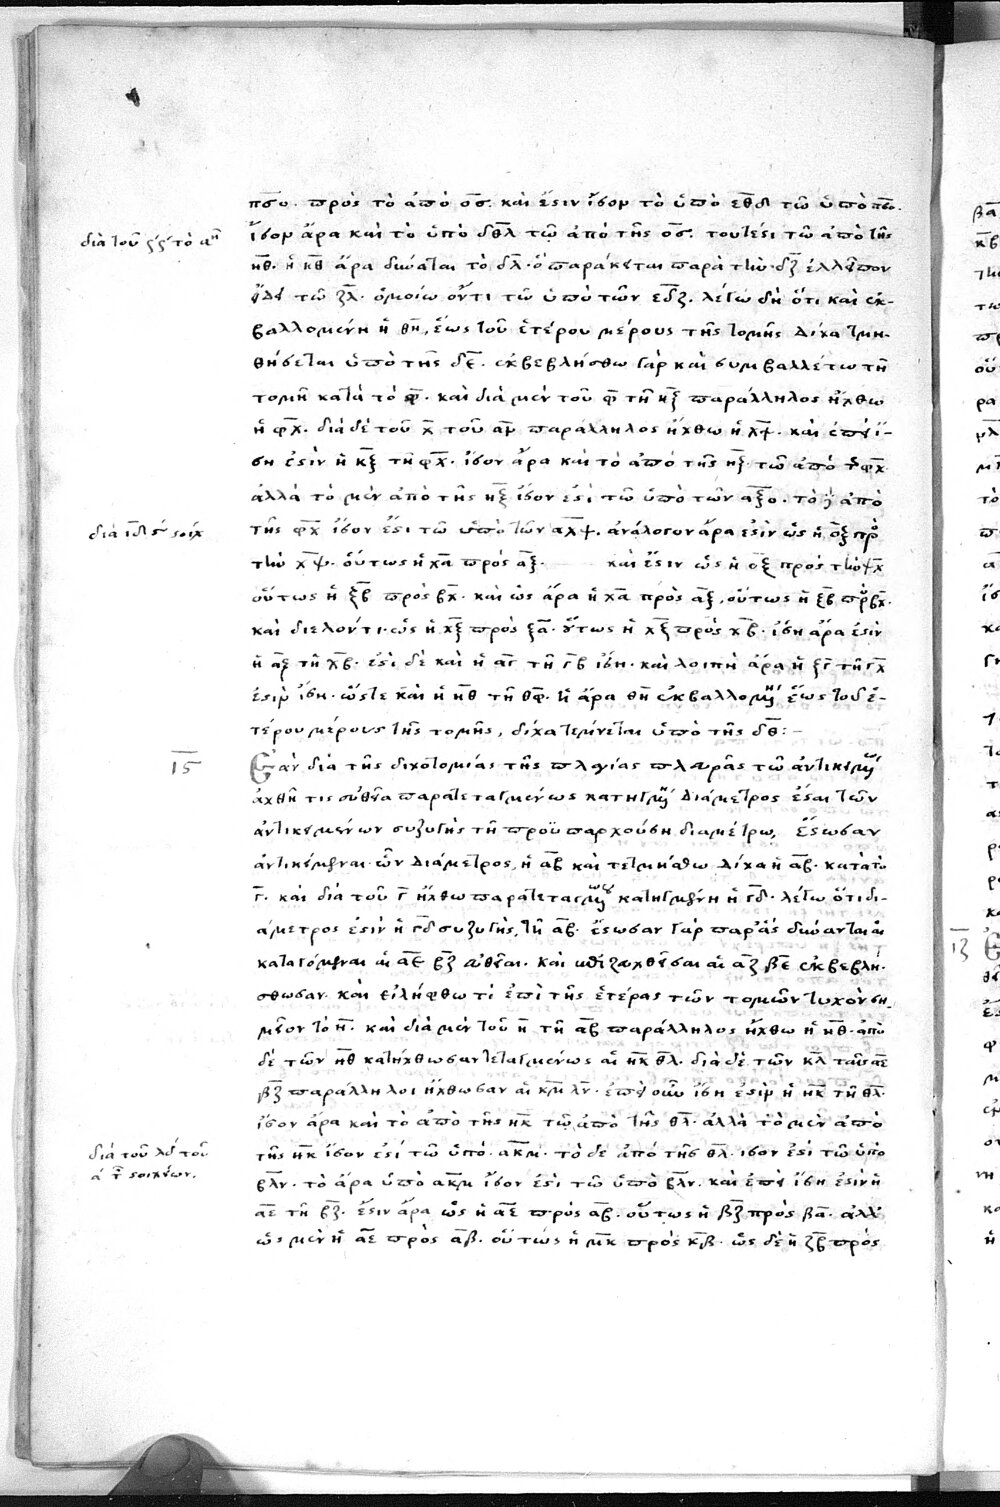 πσο. πρὸς τὸ ἀπὸ οσ. καὶ ἔστιν ἴσον τὸ ὑπὸ εθδ τῶ ὑπὸ πσο.
διὰ τοῦ
ἴσον ἄρα καὶ τὸ ὑπὸ δθλ τῶ ἀπὸ τῆς οσ. τουτέστι τῶ ἀπὸ τῆς
ηθ. ἡ κθ ἄρα δύναται τὸ δλ. ὃ παράκειται παρὰ τὴν δζ ἐλλεῖπον
εἴδει τῶ ζλ. ὁμοίω ὄντι τῶ ὑπὸ τῶν εδζ. λέγω δὴ ὅτι καὶ ἐκ-
βαλλομένη ἡ θη, ἕως τοῦ ἑτέρου μέρους τῆς τομῆς δίχα τμη-
θήσεται ὑπὸ τῆς δε. ἐκβεβλήσθω γὰρ καὶ συμβαλλέτω τῆ
τομῆ κατὰ τὸ φ. καὶ διὰ μὲν τοῦ φ τῆ ηξ παράλληλος ἤχθω
ἡ φχ. διὰ δὲ τοῦ χ τοῦ αν παράλληλος ἤχθω ἡ χψ. καὶ ἐπεὶ ἴ-
ση ἐστὶν ἡ κξ τῆ φχ. ἴσον ἄρα καὶ τὸ ἀπὸ τῆς ηξ τῶ ἀπὸ τῆς φχ
ἀλλὰ τὸ μὲν ἀπὸ τῆς ηξ ἴσον ἐστὶ τῶ ὑπὸ τῶν αξο. τὸ δὲ ἀπὸ
διὰ ιδ στοιχ
τῆς φχ ἴσον ἐστὶ τῶ ὑπὸ τῶν αχψ. ἀνάλογον ἄρα ἐστὶν ὡς ἡ οξ πρὸς
τὴν χψ. οὕτως ἡ χα πρὸς αξ. καὶ ἔστιν ὡς ἡ οξ πρὸς τὴν ψχ
οὕτως ἡ ξβ πρὸς βχ. καὶ ὡς ἄρα ἡ χα πρὸς αξ, οὕτως ἡ ξβ πρὸς βχ.
καὶ διελόντι. ὡς ἡ χξ πρὸς ξα. οὕτως ἡ χξ πρὸς χβ. ἴση ἄρα ἐστὶν
ἡ αξ τῆ χβ. ἐστὶ δὲ καὶ ἡ αγ τῆ γβ ἴση. καὶ λοιπὴ ἄρα ἡ ξγ τῆ γχ
ἐστὶν ἴση. ὥστε καὶ ἡ ηθ τῆ θφ. ἡ ἄρα θη ἐκβαλλομένη ἕως τοῦ ἑ-
τέρου μέρους τῆς τομῆς, δίχα τέμνεται ὑπὸ τῆς δθ:-
ις
Ἐὰν διὰ τῆς διχοτομίας τῆς πλαγίας πλευρᾶς τῶ ἀντικειμένων
ἀχθῆ τις εὐθεῖα παρὰ τεταγμένως κατηγμένην διάμετρος ἔσται τῶν
ἀντικειμένων συζυγὴς τῆ προϋπαρχούση διαμέτρω, ἔστωσαν
ἀντικείμεναι ὧν διάμετρος, ἡ αβ καὶ τετμήσθω δίχα ἡ αβ. κατὰ τὸ
γ. καὶ διὰ τοῦ γ ἤχθω παρὰ τεταγμένως κατηγμένην ἡ γδ. λέγω ὅτι δι-
άμετρος ἐστὶν ἡ γδ συζυγὴς, τῆ αβ. ἔστωσαν γὰρ παρ' ἃς δύνανται αἱ
καταγόμεναι αἱ αε βζ εὐθεῖαι. καὶ ἐπιζευχθεῖσαι αἱ αζ βε ἐκβεβλή-
σθωσαν. καὶ εἰλήφθω τὶ ἐπὶ τῆς ἑτέρας τῶν τομῶν τυχὸν ση-
μεῖον τὸ η. καὶ διὰ μὲν τοῦ η τῆ αβ παράλληλος ἤχθω ἡ ηθ. ἀπὸ
δὲ τῶν ηθ κατήχθωσαν τεταγμένως αἱ ηκ θλ. διὰ δὲ τῶν κλ ταῖς αε
βζ παράλληλοι ἤχθωσαν αἱ κμ λν. ἐπεὶ οὖν ἴση ἐστὶν ἡ ηκ τῆ θλ.
ἴσον ἄρα καὶ τὸ ἀπὸ τῆς ηκ τῶ ἀπὸ τῆς θλ. ἀλλὰ τὸ μὲν ἀπὸ
διὰ τοῦ λδ τοῦ
α στοιχείων.
τῆς ηκ ἴσον ἐστὶ τῶ ὑπὸ. ακμ. τὸ δὲ ἀπὸ τῆς θλ. ἴσον ἐστὶ τῶ ὑπὸ
βλν. τὸ ἄρα ὑπὸ ακμ ἴσον ἐστὶ τῶ ὑπὸ βλν. καὶ ἐπεὶ ἴση ἐστὶν ἡ
αε τῆ βζ. ἔστιν ἄρα ὡς ἡ αε πρὸς αβ. οὕτως ἡ βζ πρὸς βα. ἀλλ'
ὡς μὲν ἡ αε πρὸς αβ. οὕτως ἡ μκ πρὸς κβ. ὡς δὲ ἡ ζβ πρὸς